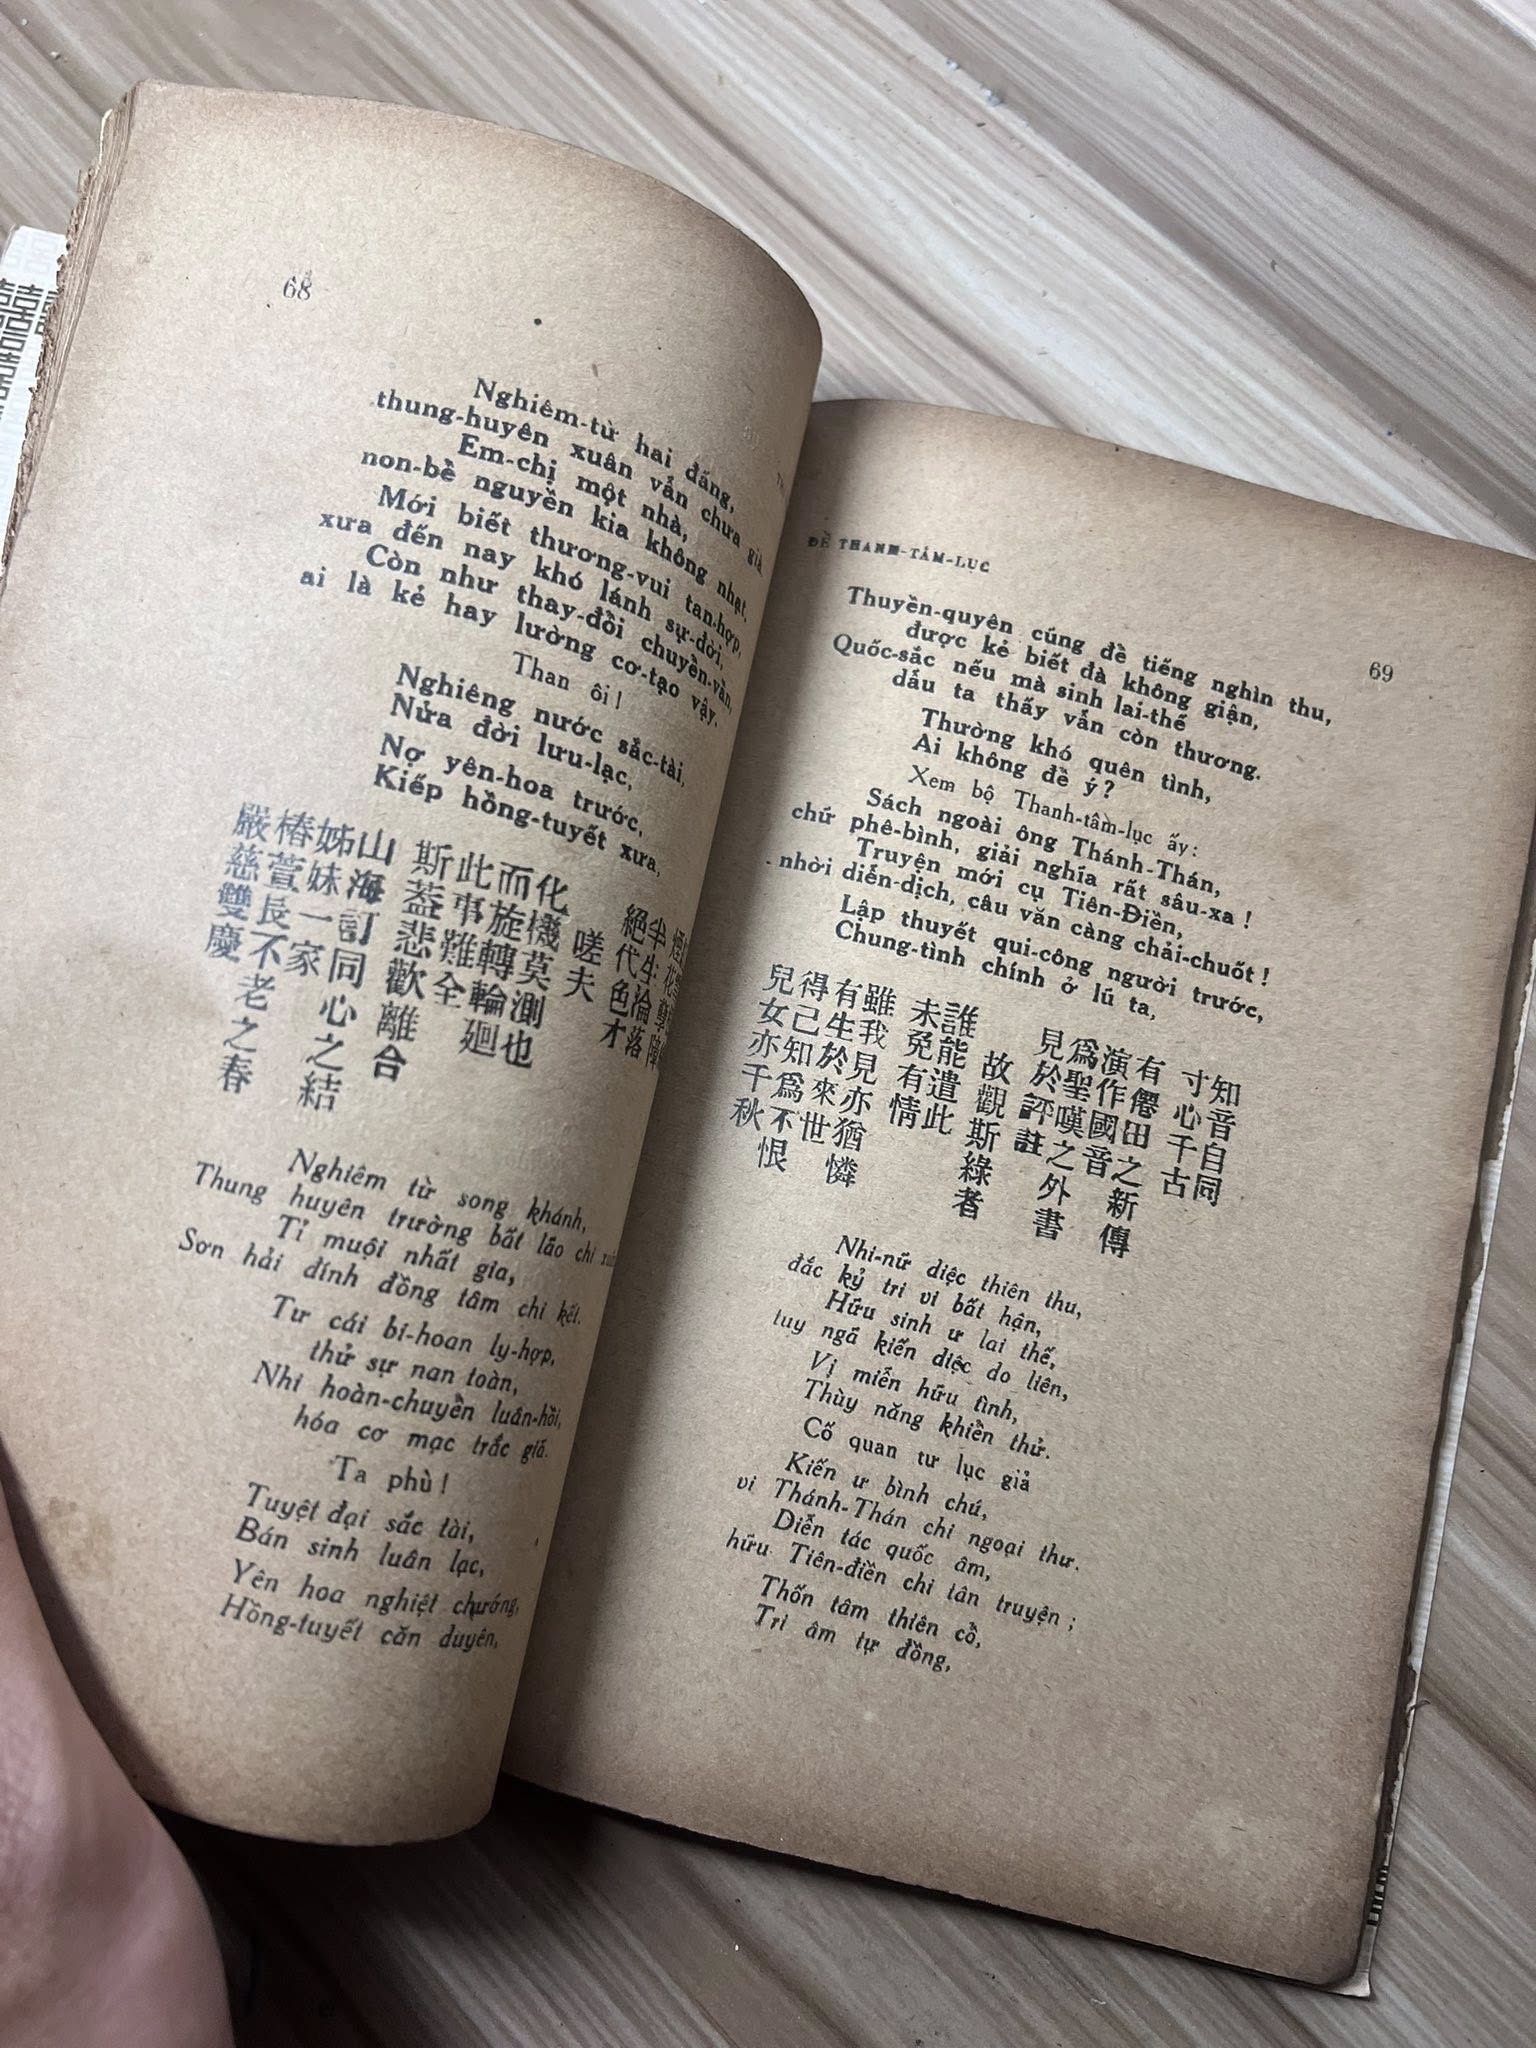 68
Nghiêm-từ hai đấng,
thung-huyên xuân vẫn chưa già.
Em-chị một nhà,
non-bề nguyền kia không nhạt,
Mới biết thương-vui tan-hợp,
xưa đến nay khó lánh sự-đời,
Còn như thay-đổi chuyển-vần,
ai là kẻ hay lường cơ-tạo vậy.
Than ôi!
Nghiêng nước sắc-tài,
Nửa đời lưu-lạc,
Nợ yên-hoa trước,
Kiếp hồng-tuyết xưa,
煙花孽障
半生淪落
絕代色才
嗟夫
化機莫測也
而旋轉輪廻
此事難全
斯葢悲歡離合
山海訂同心之結
姊妹一家
椿萱長不老之春
嚴慈雙慶
Nghiêm từ song khánh,
Thung huyên trường bất lão chi xuân
Tỉ muội nhất gia,
Sơn hải đính đồng tâm chi kết.
Tư cái bi-hoan ly-hợp,
thử sự nan toàn,
Nhi hoàn-chuyển luân-hồi,
hóa cơ mạc trắc giã.
Ta phù!
Tuyệt đại sắc tài,
Bán sinh luân lạc,
Yên hoa nghiệt chướng,
Hồng-tuyết căn duyên,
ĐỀ THANH-TÂM-LỤC
69
Thuyền-quyên cũng để tiếng nghìn thu,
được kẻ biết đà không giận,
Quốc-sắc nếu mà sinh lai-thế
dẫu ta thấy vẫn còn thương.
Thường khó quên tình,
Ai không để ý?
Xem bộ Thanh-tâm-lục ấy:
Sách ngoài ông Thánh-Thán,
chữ phê-bình, giải nghĩa rất sâu-xa!
Truyện mới cụ Tiên-Điền,
nhời diễn-dịch, câu văn càng chải-chuốt!
Lập thuyết qui-công người trước,
Chung-tình chính ở lũ ta,
知音自同
寸心千古
有僊田之新傳
演作國音
爲聖嘆之外書
見於評註
故觀斯綠者
誰能遣此
未免有情
雖我見亦猶憐
有生於來世
得己知爲不恨
兒女亦千秋
Nhi-nữ diệc thiên thu,
đắc kỷ tri vi bất hận,
Hữu sinh ư lai thế,
tuy ngã kiến diệc do liên,
Vị miễn hữu tình,
Thùy năng khiển thử.
Cố quan tư lục giả
Kiến ư bình chú,
vi Thánh-Thán chi ngoại thư.
Diễn tác quốc âm,
hữu Tiên-điền chi tân truyện;
Thốn tâm thiên cổ,
Tri âm tự đồng,